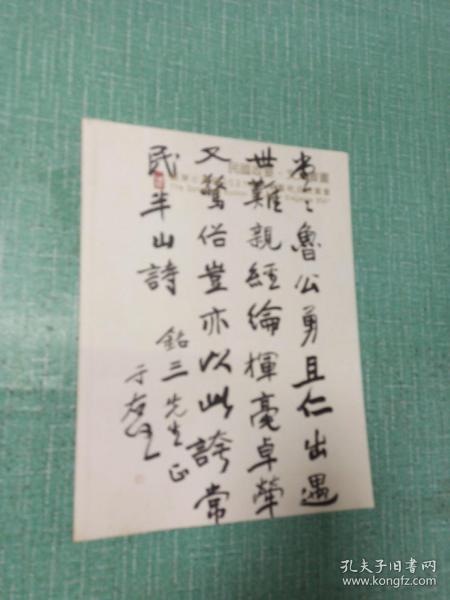 堂々魯公勇且仁出遇
世難親經綸揮毫卓犖
又驚俗豈亦以此誇常
民半山詩
銘三先生正
于右任
孔夫子旧书网
www.kongfz.com